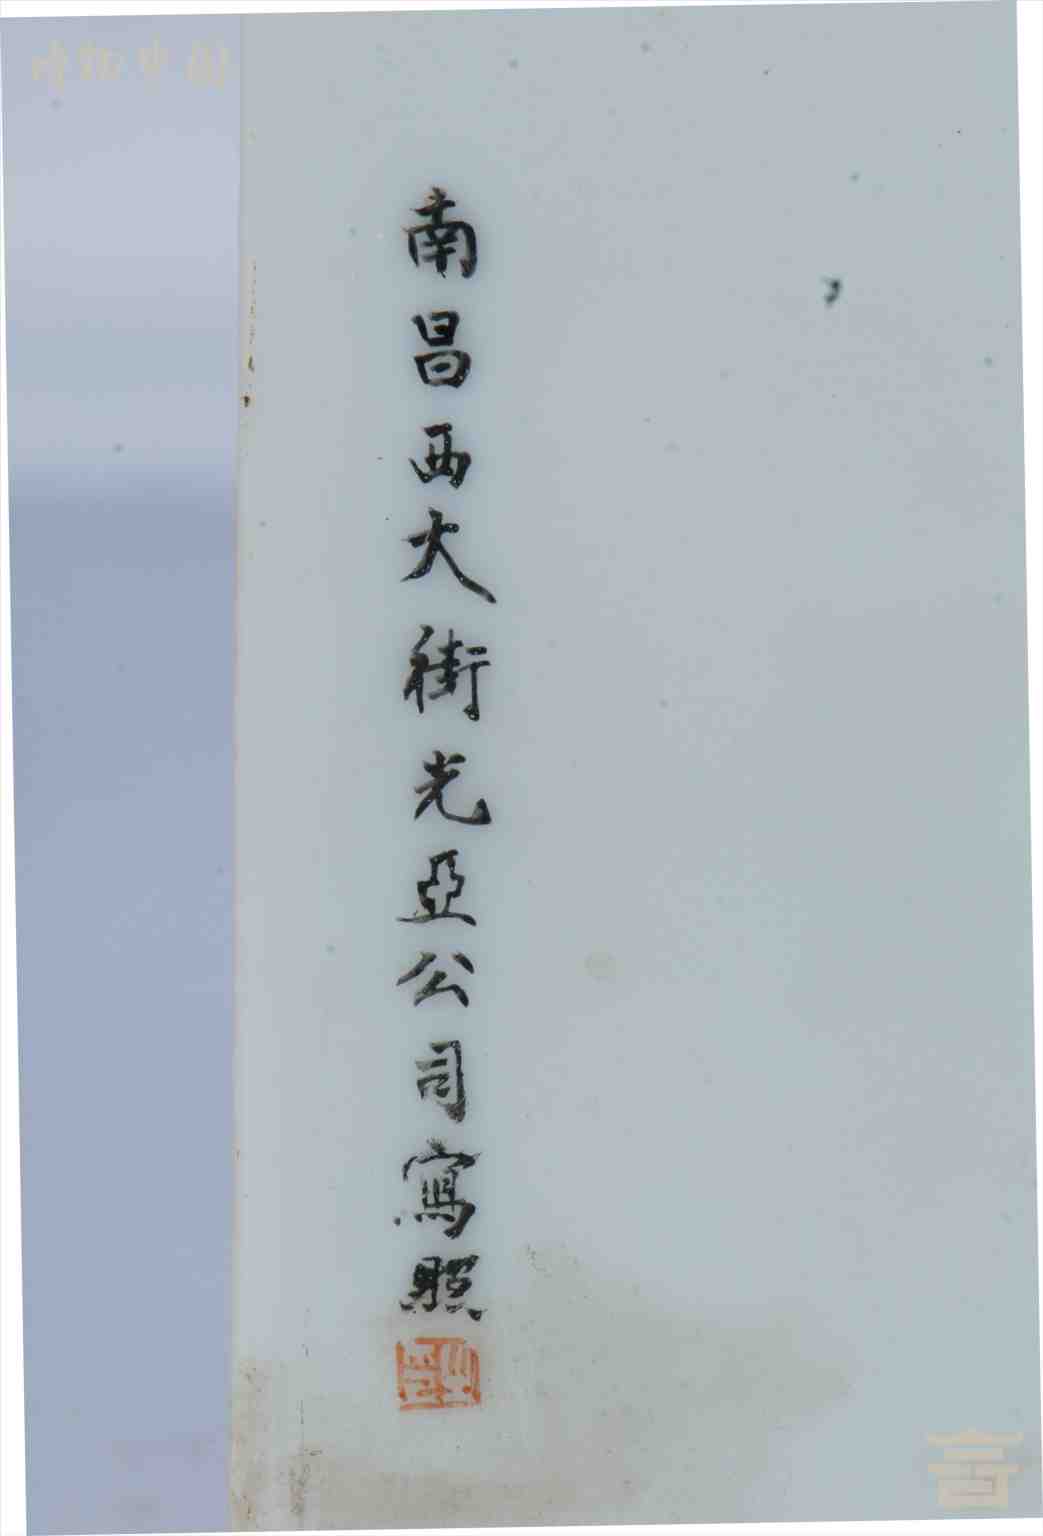 南昌西大街光亞公司寫照